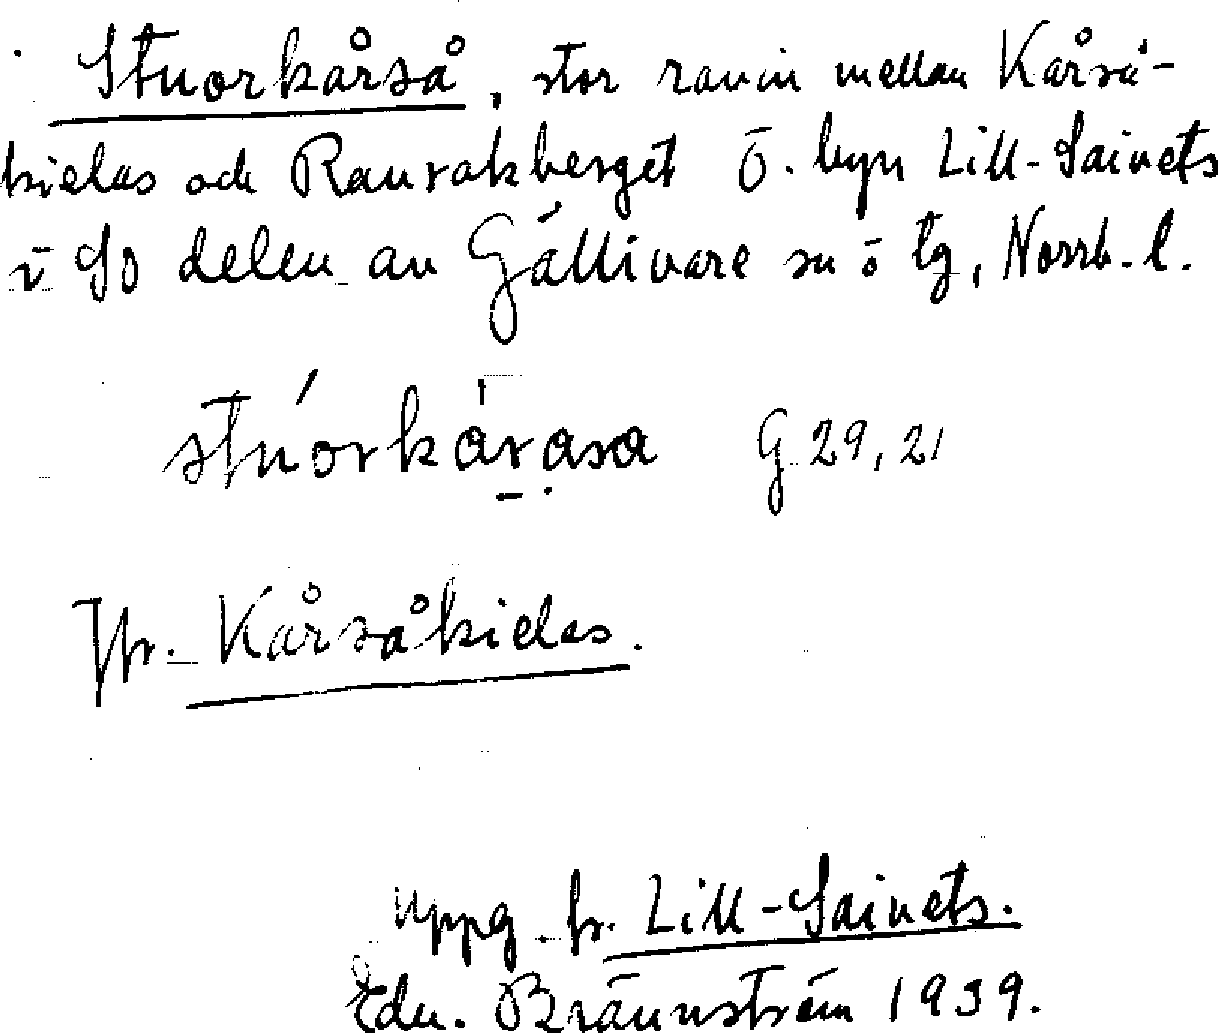 Stuorkårså, stor ravin mellan Kårså-
kielas och Rauvakberget ö. byn Lill-Saivets
i SO delen av Gällivare sn o tg, Norrb. l.
stúorkárasa G 29, 21
Jfr. Kårsåkielas.
Uppg fr. Lill-Saivets.
Edv. Brännström 1939.